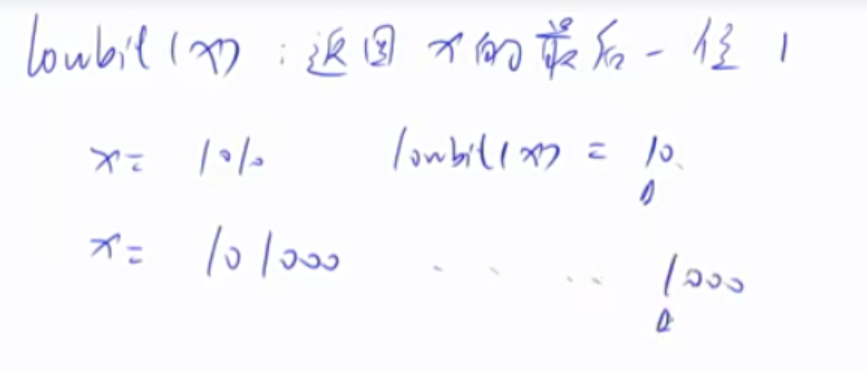 lowbit(x)：返回 x 的最后一位 1
x = 1010 lowbit(x) = 10
x = 101000 .... 1000